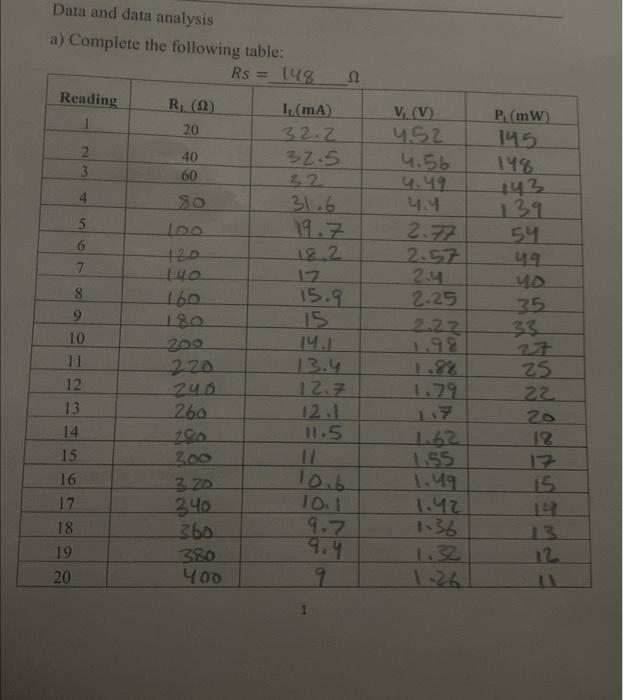 Data and data analysis
a) Complete the following table:
Rs = 148 Ω
Reading R_L (Ω) I_L (mA) V_L (V) P_L (mW)
1 20 32.2 4.52 145
2 40 32.5 4.56 148
3 60 32 4.49 143
4 80 31.6 4.4 139
5 100 19.7 2.77 54
6 120 18.2 2.57 49
7 140 17 2.4 40
8 160 15.9 2.25 35
9 180 15 2.22 33
10 200 14.1 1.98 27
11 220 13.4 1.88 25
12 240 12.7 1.79 22
13 260 12.1 1.7 20
14 280 11.5 1.62 18
15 300 11 1.55 17
16 320 10.6 1.49 15
17 340 10.1 1.42 14
18 360 9.7 1.36 13
19 380 9.4 1.32 12
20 400 9 1.26 11
1